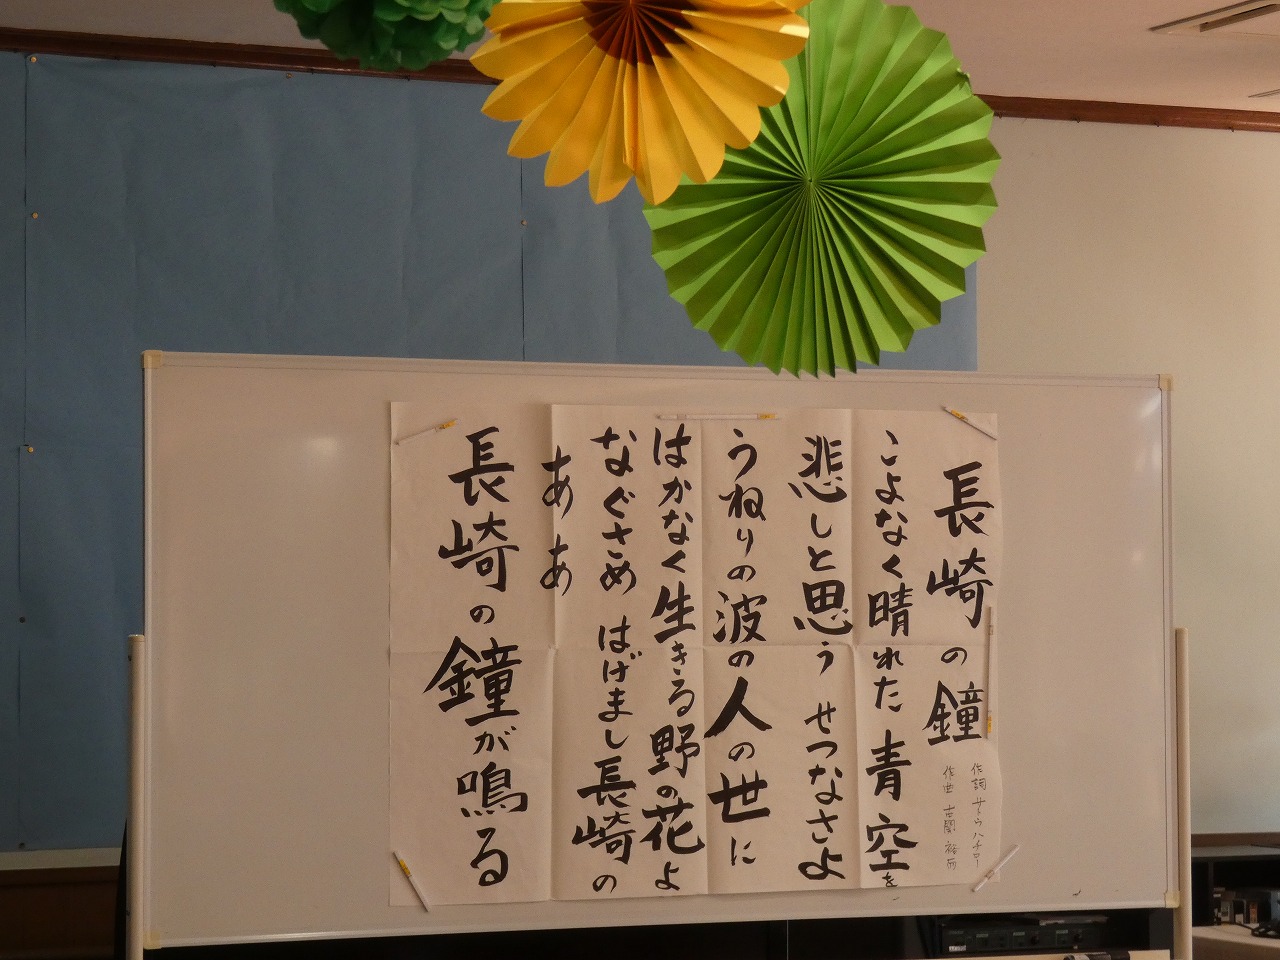 長崎の鐘
作詞 サトウハチロー
作曲 古関裕而
こよなく晴れた青空を
悲しと思う せつなさよ
うねりの波の人の世に
はかなく生きる野の花よ
なぐさめ はげまし長崎の
ああ
長崎の鐘が鳴る